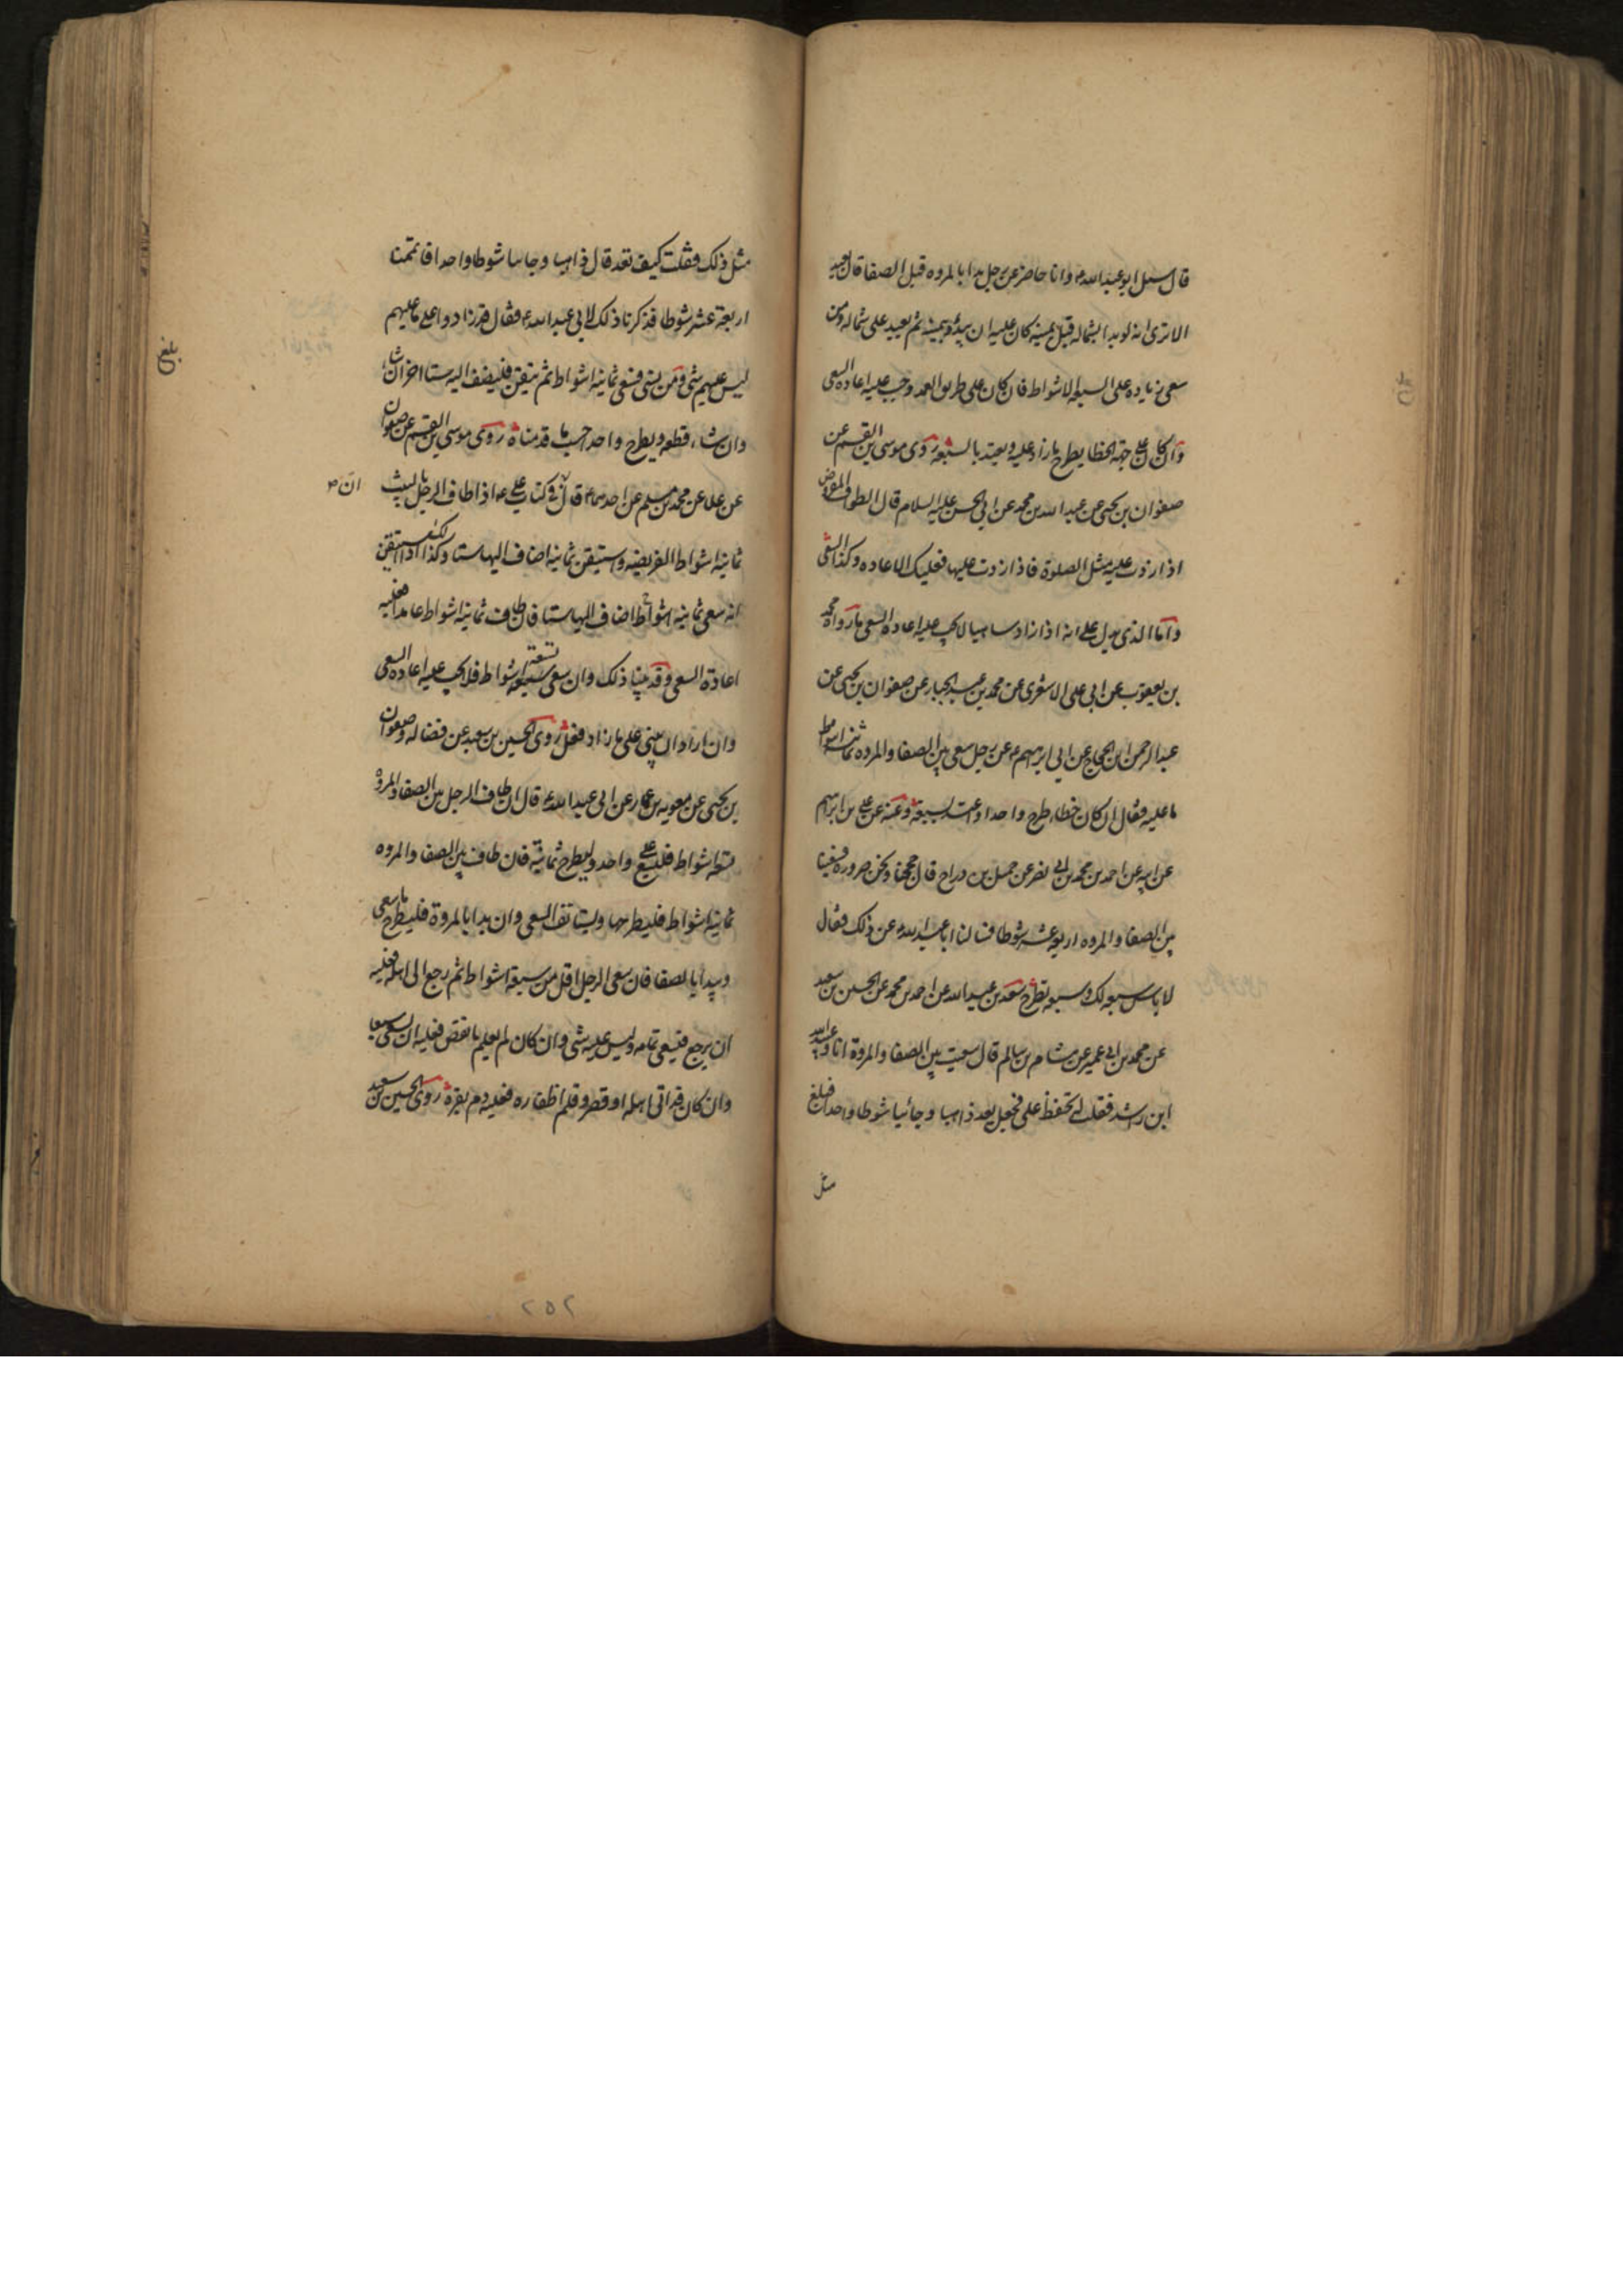 قال سئل ابو عبد الله ع وانا حاضر عن رجل بدا بالمروه قبل الصفا قال يعيد
الا ترى انه لو بدا بشماله قبل يمينه كان عليه ان يبدؤ بيمينه ثم يعيد على شماله ومن
سعى زياده على السبعه الاشواط فان كان على طريق العمد وجب عليه اعاده السعى
وان كان على جهة الخطا يطرح ما زاد عليه ويعتد بالسبعة روى موسى بن القسم عن
صفوان بن يحيى عن عبد الله بن محمد عن ابى الحسن عليه السلام قال الطواف المفروض
اذا زدت عليه مثل الصلوة فاذا زدت عليها فعليك الاعاده وكذا السعى
واما الذى يدل على انه اذا زاد ساهيا لا يجب عليه اعاده السعى ما رواه محمد
بن يعقوب عن ابى على الاشعرى عن محمد بن عبد الجبار عن صفوان بن يحيى عن
عبد الرحمن بن الحجاج عن ابى ابرهيم ع عن رجل سعى بين الصفا والمروه ثمانية اشواط
ما عليه فقال ان كان خطاء طرح واحدا واعتد بسبعة وعنه عن على بن ابراهيم
عن ابيه عن احمد بن محمد بن ابى نصر عن جميل بن دراج قال حججنا ونحن صروره فسعينا
بين الصفا والمروه اربعة عشر شوطا فسالنا ابا عبد الله ع عن ذلك فقال
لا باس سبعه لك وسبعه تطرح سعد بن عبد الله عن احمد بن محمد عن الحسين بن سعيد
عن محمد بن ابى عمير عن هشام بن سالم قال سعيت بين الصفا والمروة انا وعبيد الله
ابن راشد فقلت له تحفظ على فجعل يعد ذاهبا وجائيا شوطا واحدا فبلغ
مثل
مثل ذلك فقلت كيف تعد قال ذاهبا وجاىىا شوطا واحدا فاتممنا
اربعة عشر شوطا فذكرنا ذلك لابى عبد الله ع فقال قد زادوا على ما عليهم
ليس عليهم شى ومن نسى فسعى ثمانية اشواط ثم تيقن فليضف اليه ستا اخر ان شاء
وان شاء قطعه ويطرح واحدا حسب ما قدمناه روى موسى بن القسم عن صفوان
عن علا عن محمد بن مسلم عن احدهما ع قال ان فى كتاب على ع اذا طاف الرجل بالبيت
ثمانية اشواط الفريضه واستيقن ثمانية اضاف اليها ستا وكذلك اذا استيقن
انه سعى ثمانية اشواط اضاف اليها ستا فان طاف ثمانية اشواط عامدا فعليه
اعادة السعى وقد بينا ذلك وان سعى تسعة اشواط فلا يجب عليه اعاده السعى
وان اراد ان يبنى على ما زاد فعل روى الحسين بن سعيد عن فضاله وصفوان
بن يحيى عن معويه بن عمار عن ابى عبد الله ع قال ان طاف الرجل بين الصفا والمروة
تسعة اشواط فليسع على واحد وليطرح ثمانية فان طاف بين الصفا والمروه
ثمانية اشواط فليطرحها وليستانف السعى وان بدا بالمروة فليطرح ما سعى
ويبدا بالصفا فان سعى الرجل اقل من سبعة اشواط ثم رجع الى اهله فعليه
ان يرجع فيسعى تمامه وليس عليه شى وان كان لم يعلم ما نقص فعليه ان يسعى سبعا
وان كان قد اتى اهله او قصر وقلم اظفاره فعليه دم بقرة روى الحسين بن سعيد
بلغ
ان
٢٥٢